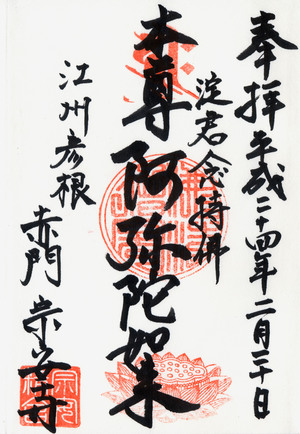 奉拝 平成二十四年二月二十日
淀君念持佛
本尊 阿弥陀如来
江州彦根
赤門 宗安寺